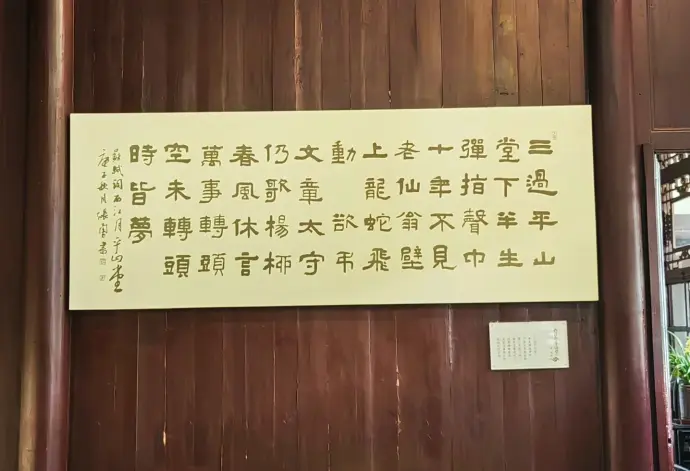 三過平山
堂下半生
彈指聲中
十年不見
老仙翁壁
上龍蛇飛
動 欲弔
文章太守
仍歌楊柳
春風休言
萬事轉頭
空未轉頭
時皆夢
蘇軾詞西江月平山堂
庚子秋月張書